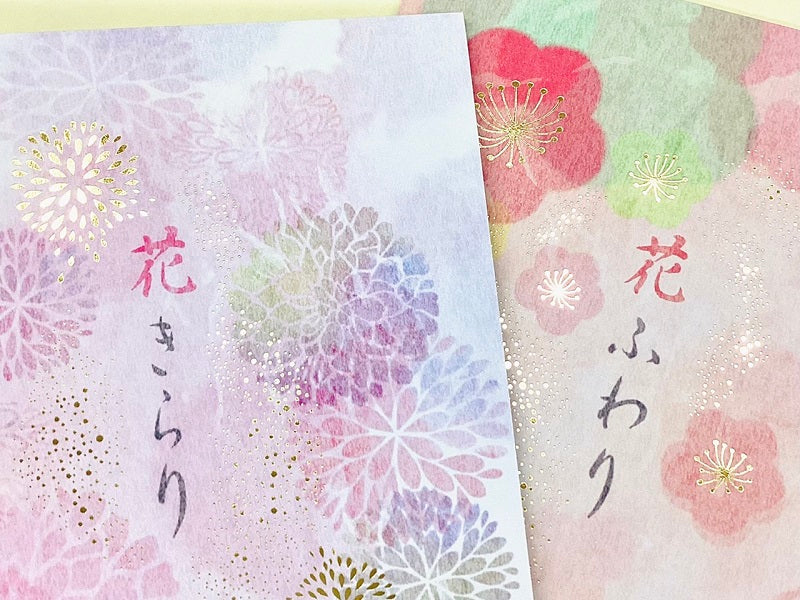 花きらり
花ふわり